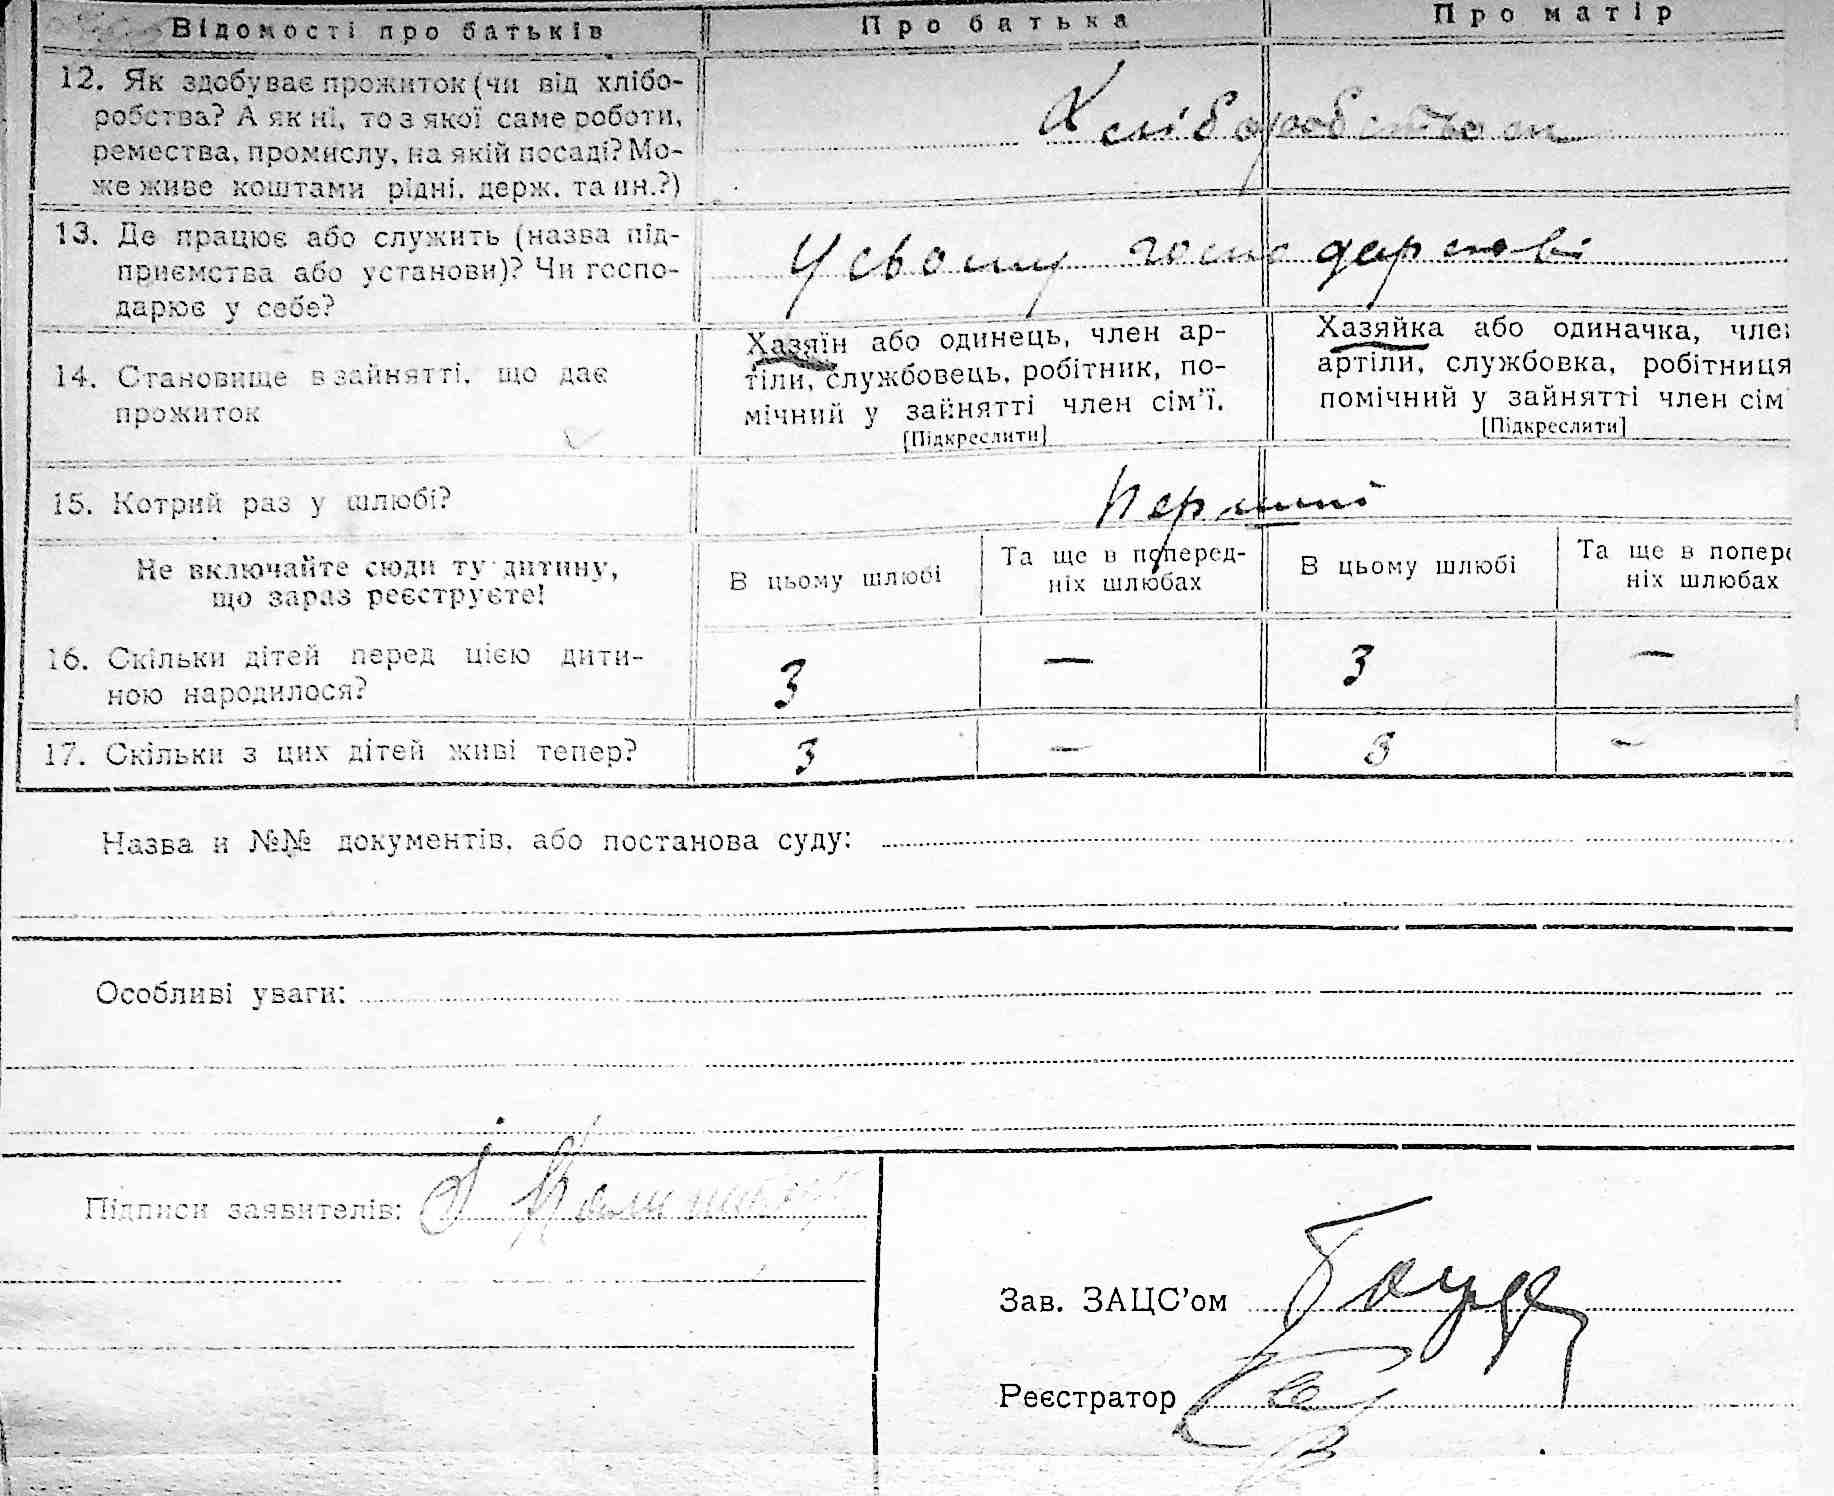 Відомості про батьків Про батька Про матір
12. Як здобуває прожиток (чи від хлібо-
робства? А як ні, то з якої саме роботи,
ремества, промислу, на якій посаді? Мо-
же живе коштами рідні, держ. та ин.?)
Хліборобством
13. Де працює або служить (назва під-
приємства або установи)? Чи госпо-
дарює у себе?
У своему господарстві
14. Становище в зайнятті, що дає
прожиток
Хазяїн або одинець, член ар-
тіли, службовець, робітник, по-
мічний у зайнятті член сім'ї.
[Підкреслити]
Хазяйка або одиначка, член
артіли, службовка, робітниця
помічний у зайнятті член сім'
[Підкреслити]
15. Котрий раз у шлюбі?
Перший
Не включайте сюди ту дитину,
що зараз реєструєте!
В цьому шлюбі
Та ще в поперед-
ніх шлюбах
В цьому шлюбі
Та ще в попере
ніх шлюбах
16. Скільки дітей перед цією дити-
ною народилося?
3 — 3 —
17. Скільки з цих дітей живі тепер? 3 — 3 —
Назва й №№ документів, або постанова суду:
Особливі уваги:
Підписи заявителів:
Зав. ЗАЦС'ом
Реєстратор